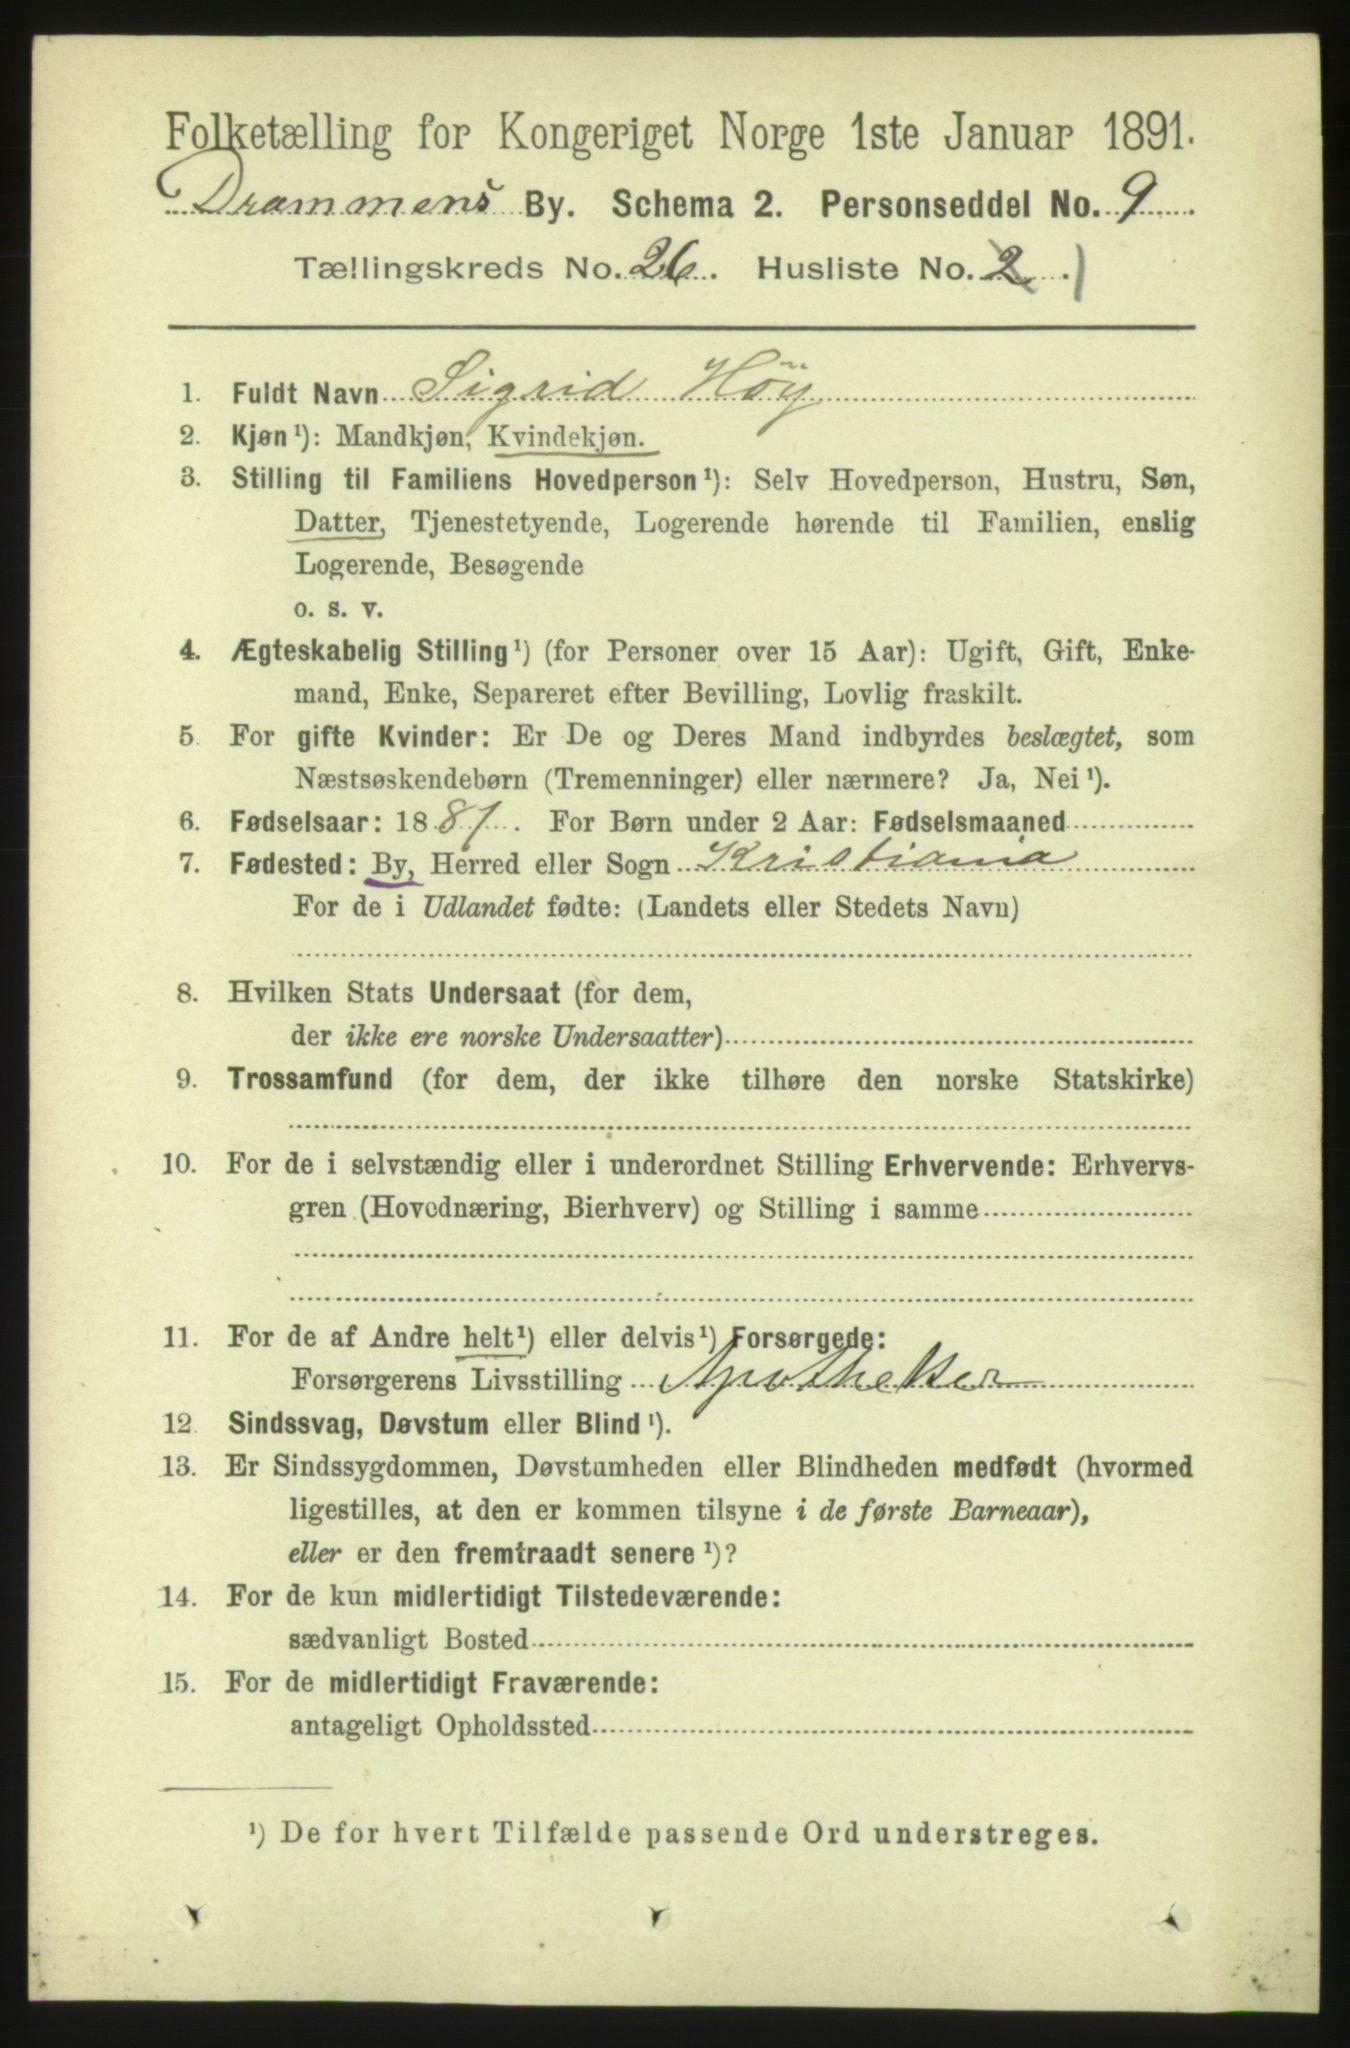 Folketælling for Kongeriget Norge 1ste Januar 1891.
Drammens By. Schema 2. Personseddel No. 9
Tællingskreds No. 26. Husliste No. 2. 1
1. Fuldt Navn Sigrid Höy
2. Kjøn ¹): Mandkjøn, Kvindekjøn.
3. Stilling til Familiens Hovedperson ¹): Selv Hovedperson, Hustru, Søn,
Datter, Tjenestetyende, Logerende hørende til Familien, enslig
Logerende, Besøgende
o. s. v.
4. Ægteskabelig Stilling ¹) (for Personer over 15 Aar): Ugift, Gift, Enke-
mand, Enke, Separeret efter Bevilling, Lovlig fraskilt.
5. For gifte Kvinder: Er De og Deres Mand indbyrdes beslægtet, som
Næstsøskendebørn (Tremenninger) eller nærmere? Ja, Nei ¹).
6. Fødselsaar: 1881. For Børn under 2 Aar: Fødselsmaaned
7. Fødested: By, Herred eller Sogn Kristiania
For de i Udlandet fødte: (Landets eller Stedets Navn)
8. Hvilken Stats Undersaat (for dem,
der ikke ere norske Undersaatter)
9. Trossamfund (for dem, der ikke tilhøre den norske Statskirke)
10. For de i selvstændig eller i underordnet Stilling Erhvervende: Erhvervs-
gren (Hovednæring, Bierhverv) og Stilling i samme
11. For de af Andre helt ¹) eller delvis ¹) Forsørgede:
Forsørgerens Livsstilling Apotheker
12. Sindssvag, Døvstum eller Blind ¹).
13. Er Sindssygdommen, Døvstumheden eller Blindheden medfødt (hvormed
ligestilles, at den er kommen tilsyne i de første Barneaar),
eller er den fremtraadt senere ¹)?
14. For de kun midlertidigt Tilstedeværende:
sædvanligt Bosted
15. For de midlertidigt Fraværende:
antageligt Opholdssted
¹) De for hvert Tilfælde passende Ord understreges.